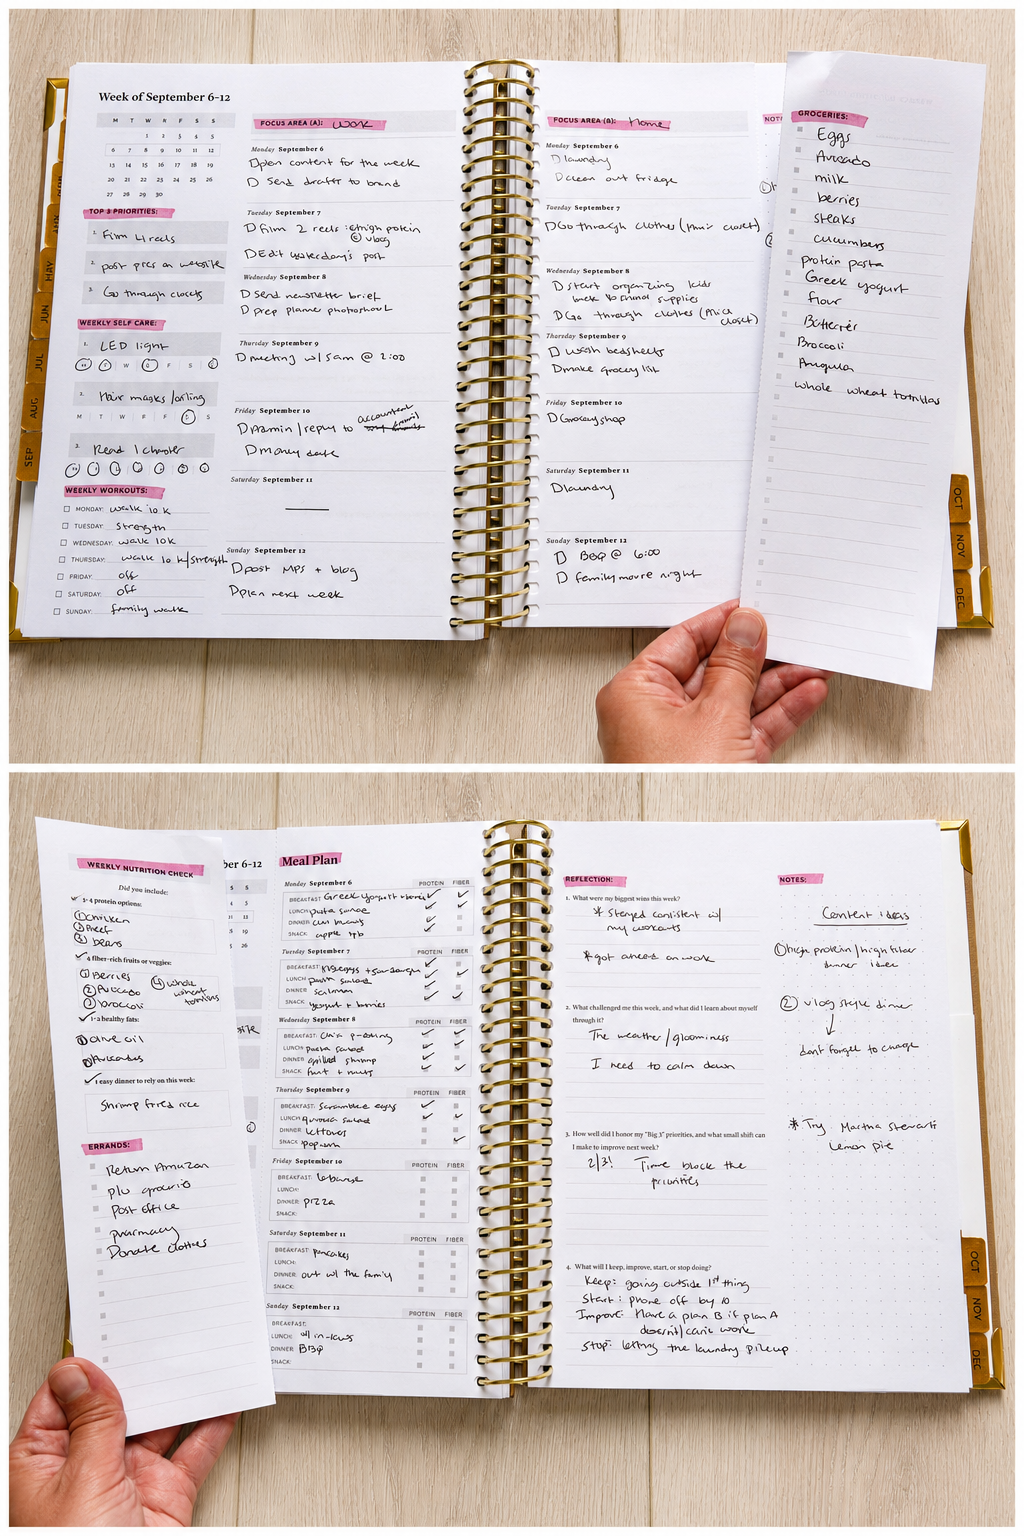 Week of September 6-12
M T W T F S S
1 2 3 4 5
6 7 8 9 10 11 12
13 14 15 16 17 18 19
20 21 22 23 24 25 26
27 28 29 30
TOP 3 PRIORITIES:
1. Film 4 reels
2. post pics on website
3. Go through closets
WEEKLY SELF CARE:
1. LED light
W F S
2. Hair masks/oiling
M T W T F S
3. Read 1 chapter
WEEKLY WORKOUTS:
MONDAY: walk 10k
TUESDAY: Strength
WEDNESDAY: walk 10k
THURSDAY: walk 10k/strength
FRIDAY: off
SATURDAY: off
SUNDAY: family walk
FOCUS AREA (A): Work
Monday September 6
open content for the week
Send drafts to brand
Tuesday September 7
Film 2 reels: protein
vlog
Edit yesterday's post
Wednesday September 8
Send newsletter brief
prep planner photoshoot
Thursday September 9
meeting w/ Sam @ 2:00
Friday September 10
Admin/reply to accountant
money date
Saturday September 11
Sunday September 12
post MPS + blog
plan next week
FOCUS AREA (B): Home
Monday September 6
laundry
clean out fridge
Tuesday September 7
Go through clothes ( closet)
Wednesday September 8
start organizing kids
back to school supplies
Go through clothes ( closet)
Thursday September 9
wash bedsheets
make grocery list
Friday September 10
Grocery shop
Saturday September 11
laundry
Sunday September 12
BBQ @ 6:00
family movie night
GROCERIES:
Eggs
Avocado
milk
berries
steaks
cucumbers
protein pasta
Greek yogurt
flour
Broccoli
Arugula
whole wheat tortillas
OCT
NOV
DEC
MAY
JUN
JUL
AUG
SEP
WEEKLY NUTRITION CHECK
Did you include:
3-4 protein options:
1 chicken
2 Beef
3 beans
4 fiber-rich fruits or veggies:
1 Berries
2 Avocado
3 broccoli
4 whole
wheat
tortillas
1-2 healthy fats:
1 olive oil
2 Avocados
1 easy dinner to rely on this week:
Shrimp fried rice
ERRANDS:
Return Amazon
p/u groceries
Post office
pharmacy
Donate clothes
ber 6-12
Meal Plan
Monday September 6 PROTEIN FIBER
BREAKFAST: Greek yogurt + berries
LUNCH: pasta
DINNER:
SNACK: apple + pb
Tuesday September 7 PROTEIN FIBER
BREAKFAST: eggs + sourdough
LUNCH: pasta salad
DINNER: salmon
SNACK: yogurt + berries
Wednesday September 8 PROTEIN FIBER
BREAKFAST: Chia pudding
LUNCH: pasta salad
DINNER: grilled shrimp
SNACK: fruit + nuts
Thursday September 9 PROTEIN FIBER
BREAKFAST: Scrambled eggs
LUNCH: quinoa salad
DINNER: leftovers
SNACK: popcorn
Friday September 10 PROTEIN FIBER
BREAKFAST:
LUNCH:
DINNER: pizza
SNACK:
Saturday September 11 PROTEIN FIBER
BREAKFAST: pancakes
LUNCH:
DINNER: out w/ the family
SNACK:
Sunday September 12 PROTEIN FIBER
BREAKFAST:
LUNCH: in-laws
DINNER: BBQ
SNACK:
REFLECTION:
1. What were my biggest wins this week?
* Stayed consistent w/
my workouts
* got ahead on work
2. What challenged me this week, and what did I learn about myself
through it?
The weather/gloominess
I need to calm down
3. How well did I honor my "Big 3" priorities, and what small shift can
I make to improve next week?
2/3! Time block the
priorities
4. What will I keep, improve, start, or stop doing?
Keep: going outside 1st thing
Start: phone off by 10
Improve: Have a plan B if plan A
doesn't/can't work
Stop: letting the laundry pile up
NOTES:
Content ideas
1 high protein/high fiber
dinner idea
2 vlog style dinner
don't forget to charge
* Try Martha Stewart
Lemon pie
OCT
NOV
DEC